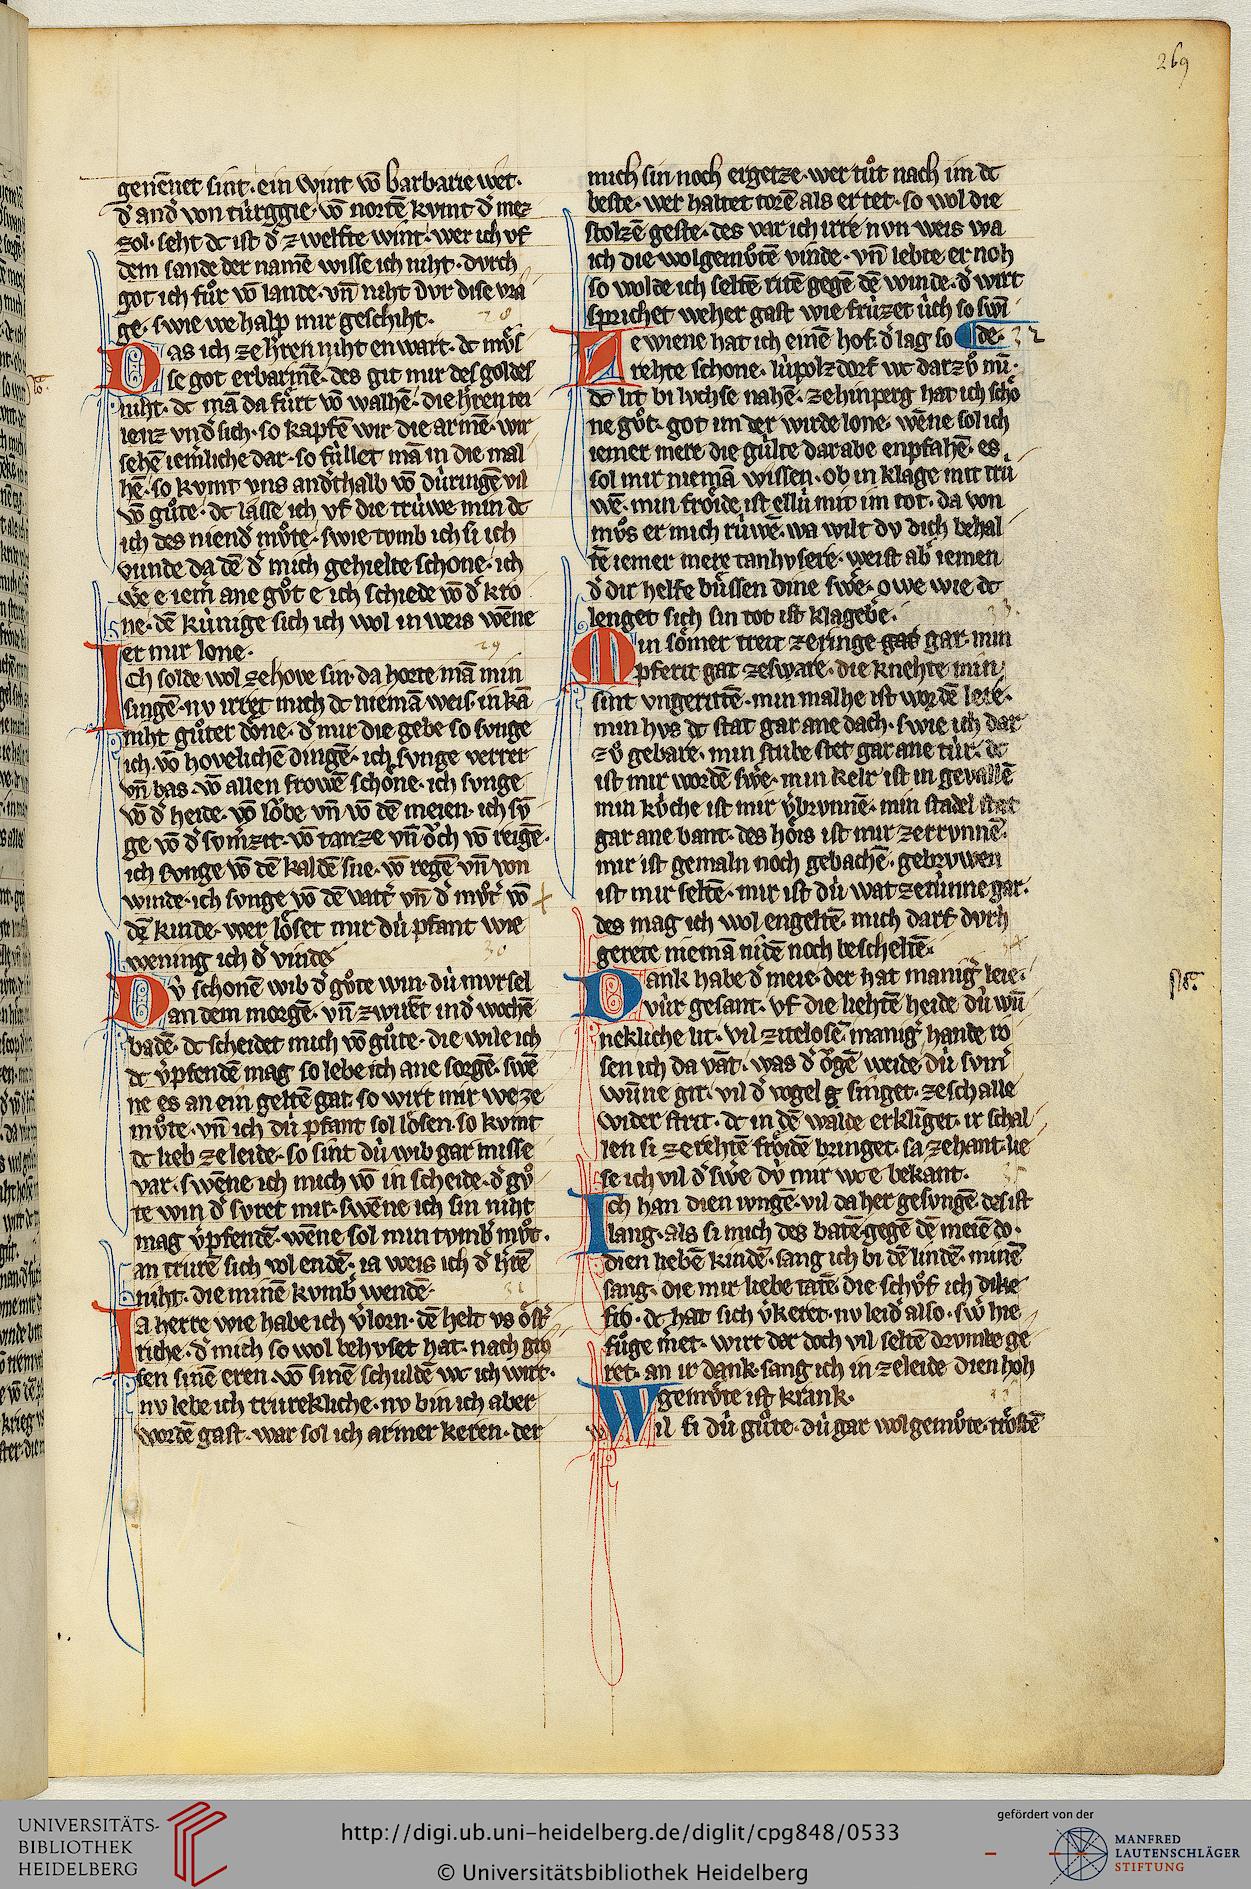 269
genēnet sint. ein wint vō barbarie wet.
d' and' von túrggie. vō nortē kvmt d' mez
zol. seht dc ist d' zwelfte wint. wer ich vf
dem sande der namē wisse ich niht. dvrch
got ich fůr vō lande. vn̄ niht dvr dise vra
ge. swie we halp mir geschiht.
28
Das ich ze h'ren niht en wart. dc mv̊s
se got erbarmē. des git mir des goldes
niht. dc mā da fůrt vō walhē. die h'ren tei
lenz vnd' sich. so kapfē wir die armē. wir
sehē iemliche dar. so fúllet mā in die mal
hē. so kvmt vns and'thalb vō dúringē vil
vō gůte. dc lasse ich vf die trúwe min dc
ich des niend' mv̊te. swie tvmb ich si ich
vunde da dē d' mich gehielte schone. ich
wēr e iem' ane gv̊t e ich schiede vō d' kro
ne. dē kúnige sich ich wol in weis wēne
er mir lone.
29
Ich solde wol ze hove sin. da horte mā min
singē. nv irret mich dc niemā weis. in kā
niht gůter dōne. d' mir die gebe so svnge
ich. vō hovelichē dingē. ich svnge verrer
vn̄ bas. vō allen frowē schōne. ich svnge
vō d' heide. vō lōbe vn̄ vō dē meien. ich sv̄
ge vō d' svm'zit. vō tanze vn̄ ōch vō reigē.
ich svnge vō dē kaldē sne. vō regē vn̄ von
winde. ich svnge vō dē vatt' vn̄ d' mv̊t' vō
dē kinde. wer lōset mir dú pfant wie
wening ich d' vinde
30
Dv́ schonē wib d' gv̊te win. dú mvrsel
an dem morgē. vn̄ zwirēt ind' wochē
badē. dc scheidet mich vō gůte. die wile ich
dc v'pfendē mag so lebe ich ane sorgē. swē
ne es an ein geltē gat. so wirt mir we ze
mv̊te. vn̄ ich dú pfant sol lōsen. so kvmt
dc lieb ze leide. so sint dú wib gar misse
var. swēne ich mich vō in scheide. d' gv̊
te win d' svret mir. swēne ich sin niht
mag v'pfendē. wēne sol min tvmb' mv̊t.
an trurē sich vol endē. ia weis ich d' h'rē
niht. die minē kvmb' wendē.
31
Ia herre wie habe ich v'lorn. dē helt vs ōst'
riche. d' mich so wol behvset hat. nach gro
sen sinē eren. vō sinē schuldē wc ich wirt.
nv lebe ich trurekliche. nv bin ich aber
wordē gast. war sol ich armer keren. der
mich sin noch ergetze. wer tůt nach im dc
beste. wer haltet torē als er tet. so wol die
stolzē geste. des var ich irre nvn weis wa
ich die wolgemv̊tē vinde. vn̄ lebte er noh
so wolde ich seltē ritē gegē dē winde. d' wirt
sprichet we her gast wie frúzet úch so swi
de. 32
Ze wiene hat ich einē hof. d' lag so
rehte schone. lúpolzdorf wc dar zů mī.
dc lit bi lvchse nahē. ze hinperg hat ich schō
ne gv̊t. got im der wirde lone. wēne sol ich
iemer mere die gúlte dar abe enpfahē. es
sol mir niemā wissen. ob in klage mit trú
wē. min frōide ist ellú mit im tot. da von
mv̊s er mich rúwē. wa wilt dv dich behal
tē iemer mere tanhvsere. weist ab' iemen
d' dir helfe bússen dine sw'e. owe wie dc
lenget sich sin tot ist klageb'e.
33.
Min sōmer treit ze ringe gar min
pferit gat ze sware. die knehte min
sint vngerittē. min malhe ist wordē lere.
min hvs dc stat gar ane dach. swie ich dar
zů gebare. min stube stet gar ane túr. dc
ist mir wordē sw'e. min kelr ist in gevallē
min kv́che ist mir v'brvnnē. min stadel stat
gar ane bant. des hōis ist mir zerrvnnē.
mir ist gemaln noch gebachē. gebrvwen
ist mir seltē. mir ist dú wat ze túnne gar.
des mag ich wol engeltē. mich darf dvrh
gerete niemā nidē noch bescheltē.
34
Dank habe d' meie. der hat manig' leie.
vúr gesant. vf die liehtē heide dú wū
nekliche lit. vil zitelosē. manig' hande ro
sen ich da vāt. was d' ōgē weide. dú svm'
wūne git. vil d' vogel g singet. ze schalle
wider strit. dc in dē walde erklīget. ir schal
len si ze rehtē frōidē bringet. sa zehant lie
se ich vil d' sw'e dú mir wc e bekant.
35
Ich han dien ivngē. vil da her gesvngē. des ist
lang. als si mich des batē. gegē dē meiē do.
dien liebē kindē. sang ich bi dē lindē. minē
sang. die mir liebe tatē. die schv̊f ich dike
fro. dc hat sich v'keret. nv leid' also. sw' hie
fůge m'et. wirt der doch vil seltē drvmbe ge
ret. an ir dank. sang ich in ze leide dien hoh
gemv̊te ist krank.
Wil si dú gv̊te. dú gar wolgemv̊te. trōstē
UNIVERSITÄTS-
BIBLIOTHEK
HEIDELBERG
http://digi.ub.uni-heidelberg.de/diglit/cpg848/0533
© Universitätsbibliothek Heidelberg
gefördert von der
MANFRED
LAUTENSCHLÄGER
STIFTUNG